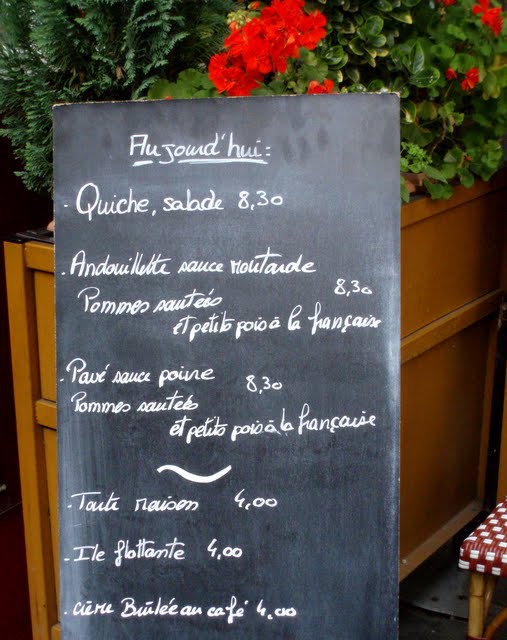 Aujourd'hui:
- Quiche, salade 8,30
- Andouillette sauce moutarde
8,30
Pommes sautées
et petits pois à la française
- Pavé sauce poivre 8,30
Pommes sautées
et petits pois à la française
- Tarte maison 4,00
- Ile flottante 4,00
- crème Brûlée au café 4,00